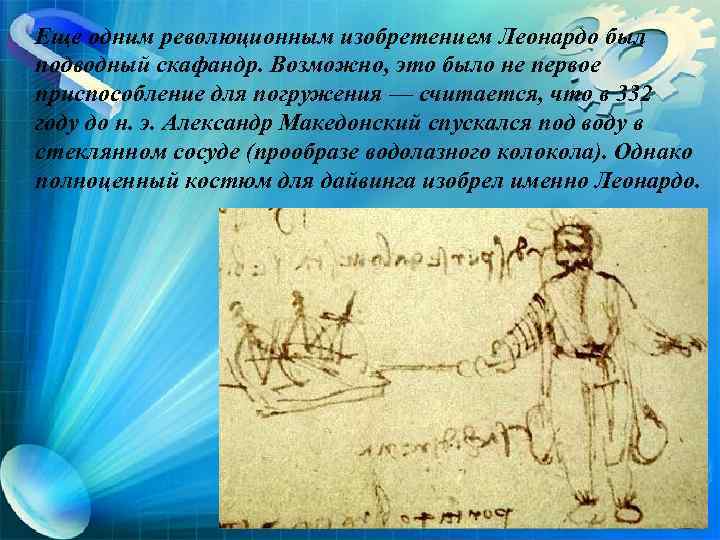 Еще одним революционным изобретением Леонардо был
подводный скафандр. Возможно, это было не первое
приспособление для погружения — считается, что в 332
году до н. э. Александр Македонский спускался под воду в
стеклянном сосуде (прообразе водолазного колокола). Однако
полноценный костюм для дайвинга изобрел именно Леонардо.